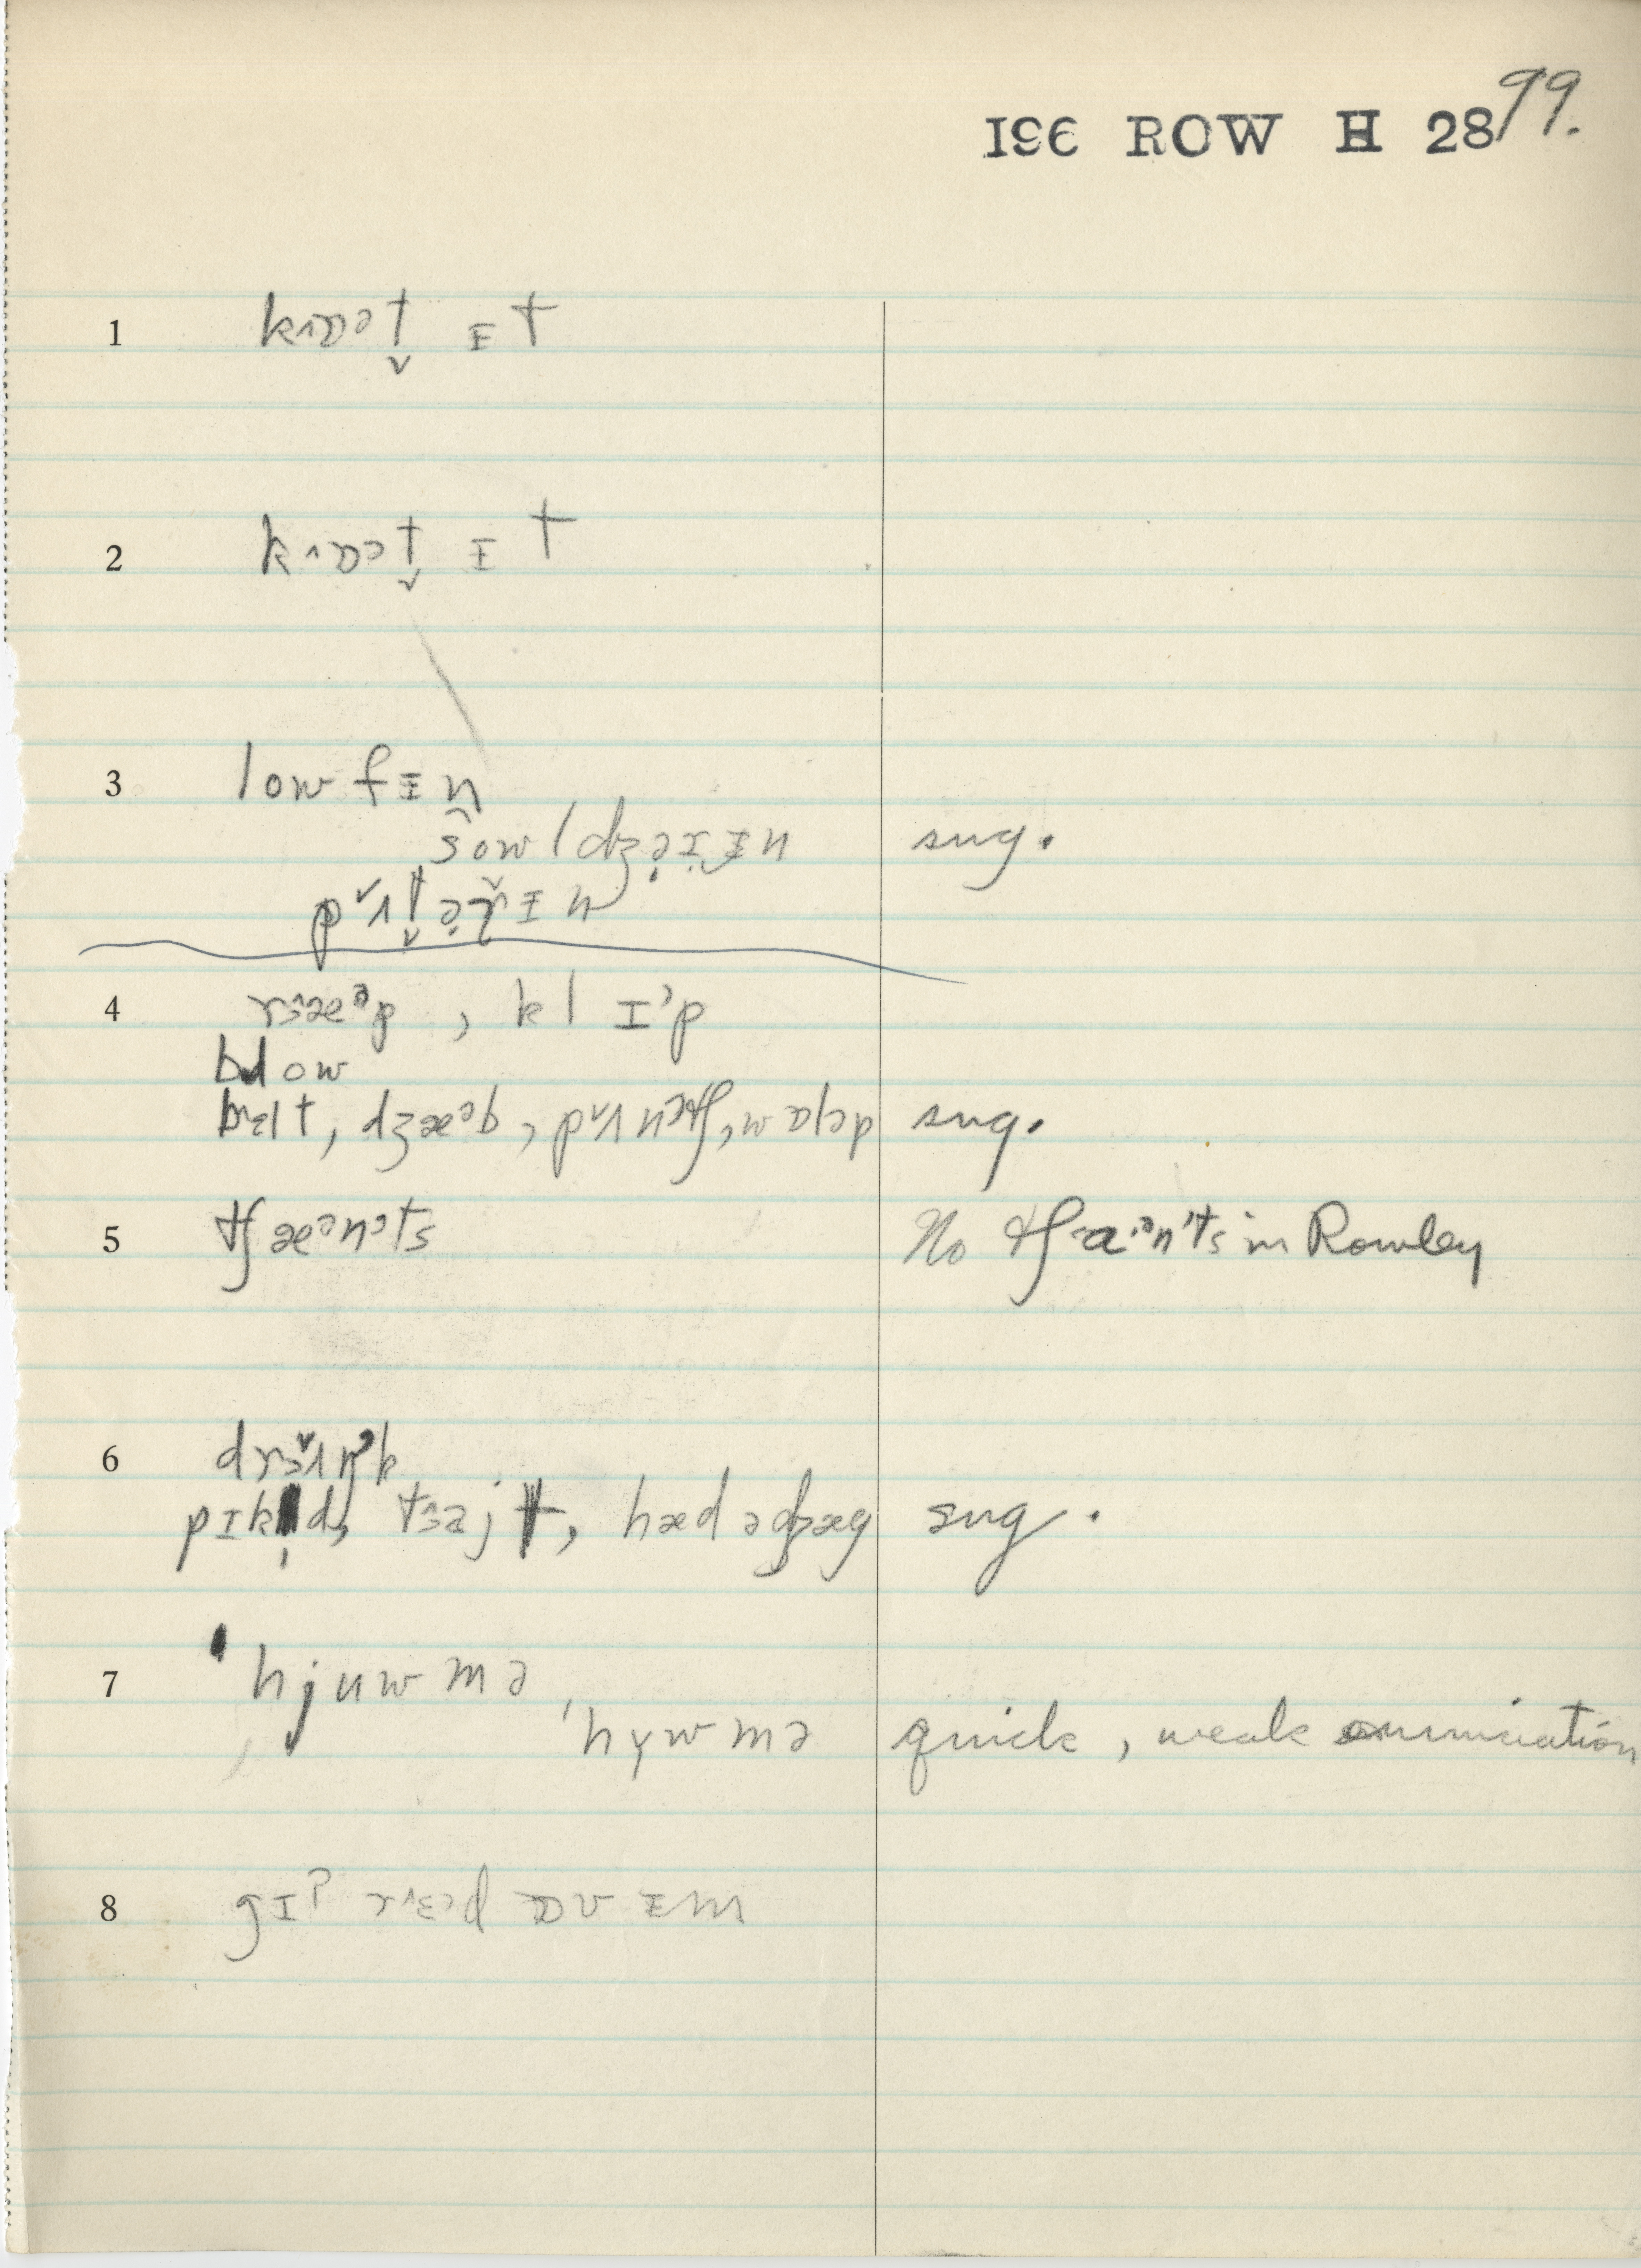 196 ROW H 28 99.
1 kɹ̂ɒət̬ ᵻt
2 kɹ̂ɒət̬ ɪt
3 lowfᵻn
ʃ̂owldʒə̣ɪ̣ᵻn sug.
pᵛʌt̬ə̣ɹ̌ᵻn
4 rɜ̂æᵊp, klɪᵊp
blow
bɛlt, dʒæᵊb, pᵛʌnᵊtʃ, wɒləp sug.
5 tʃæᵊnᵊts No tʃa·ᵊnᵗts in Rowley
6 drɜ̌ʌŋᵊk
pɪkl̩d, tɜ̂ajt, hædədʒæg sug.
7 ˈhjuwmə
ˈhywmə quick, weak enunciation
8 gɪᵊ rɛ̂əd ɒv ᵻm